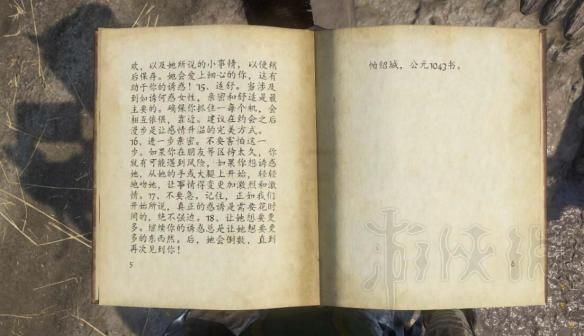 欢，以及她所说的小事情，以便稍
后保存。她会爱上细心的你，这有
助于你的诱惑！15、适舒。当涉及
到如诱何惑女性，亲密和舒适是最
主要的。确保你抓住一每个机，会
相互依偎，靠近。建议在约会之后
漫步是让感情升温的完美方式。
16、进一步亲密。不要害怕这一
步。如果你在朋友等区待太久，你
就有可能遇到风险，如果你想诱惑
她，从她的手或大腿上开始，轻轻
地吻她，让事情得变更加激烈和激
情。17、不要急。记住，正如我们
开始所说，真正的惑诱是需要花时
间的，绝不强迫。18、让她想要更
多。继续你的诱惑总是让她想要更
多的东西然。后，她会倒数，直到
再次见到你！
5
怕绍城，公元1043书。
6
游侠